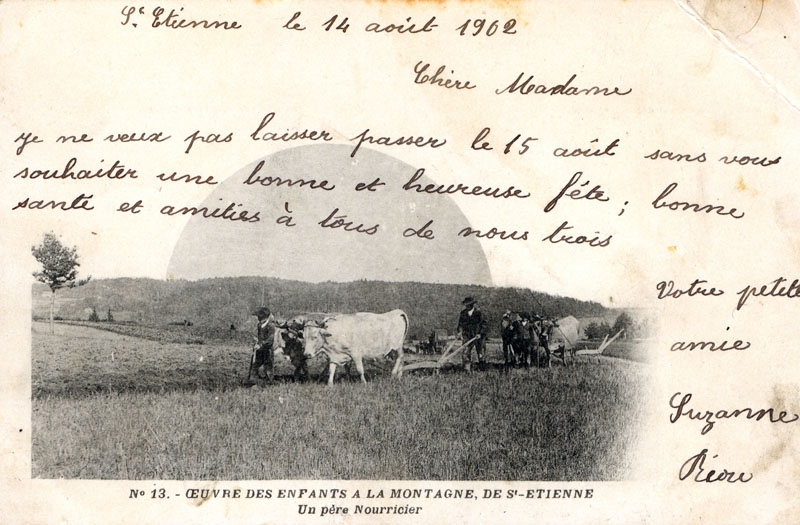 St Etienne le 14 août 1902
Chère Madame
Je ne veux pas laisser passer le 15 août sans vous
souhaiter une bonne et heureuse fête ; bonne
santé et amitiés à tous de nous trois
Votre petite
amie
Suzanne
No 13. - ŒUVRE DES ENFANTS A LA MONTAGNE, DE St-ETIENNE
Un père Nourricier